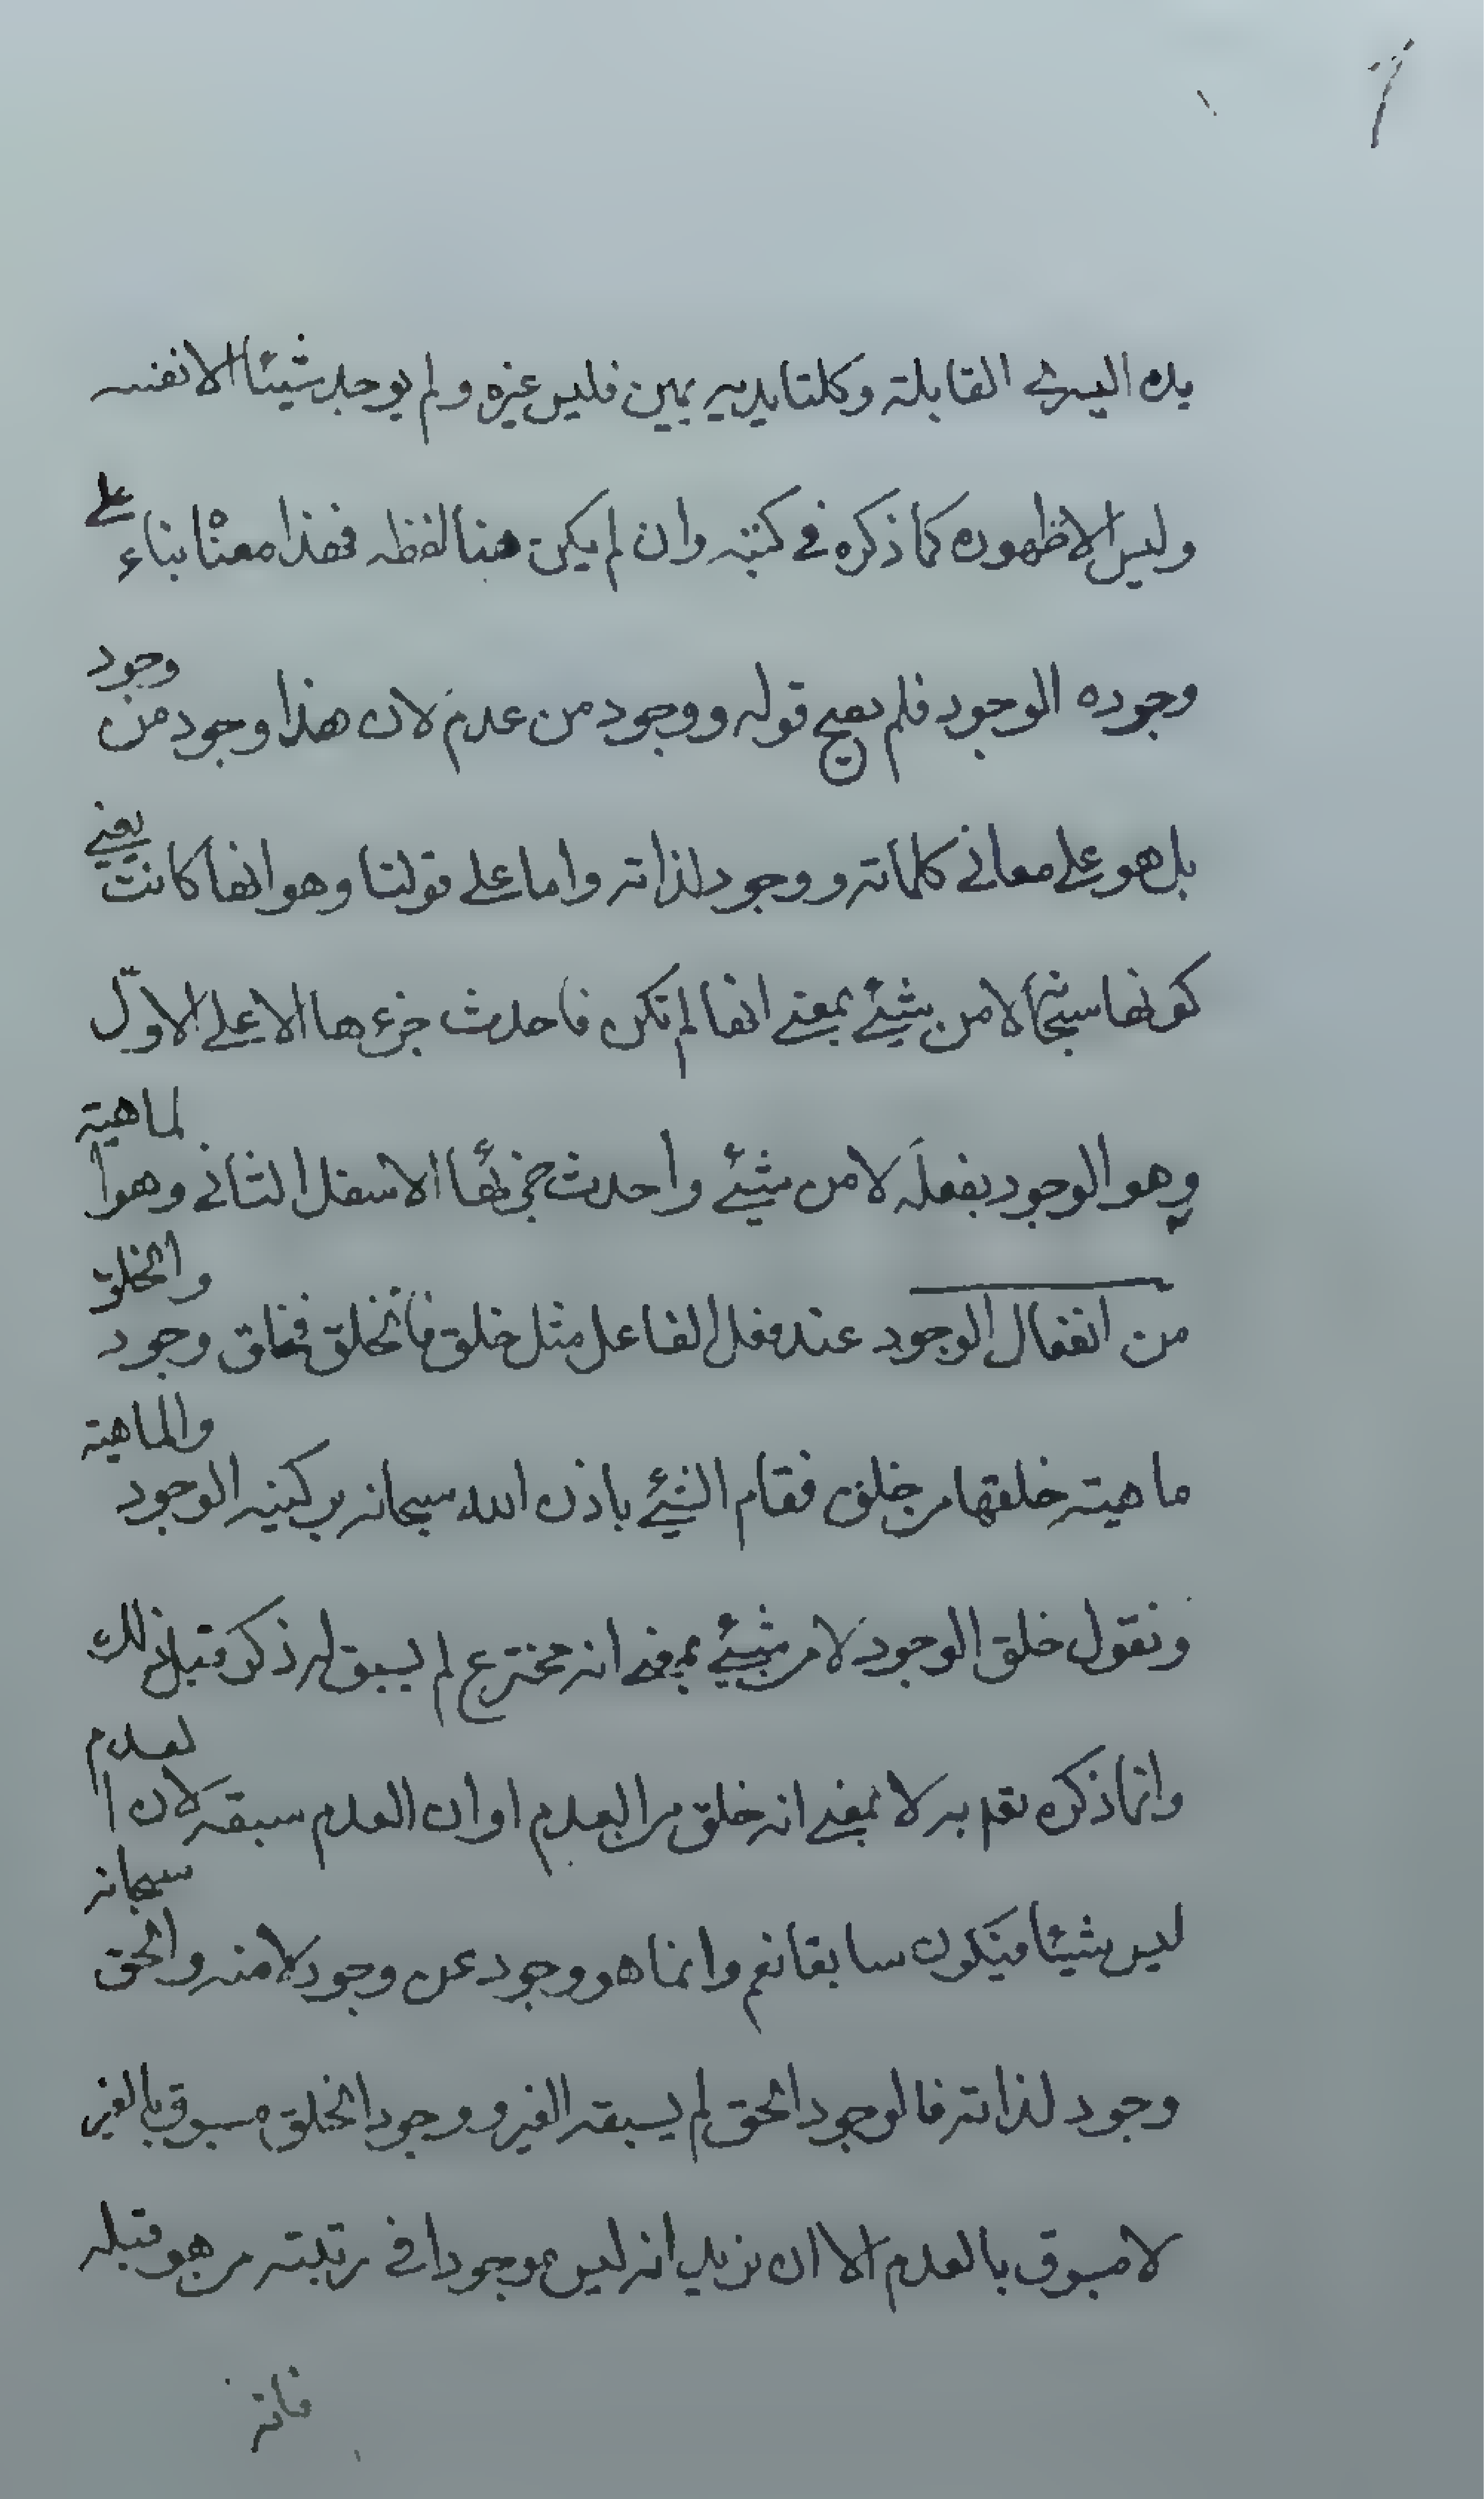 يده اليسرى القابلة وكلتا يديه يمين فليس غيره ولم يوجد شيئا الا نفسه
وليس الا ظهوره كما ذكره في كتبه وان لم يكن هنا لفظه فهذا معناه بناء على
وجوده الوجود فلم يصح قوله ووجود من عدم لان هذا وجود من وجود
بل هو على معاني كلماته ووجود لذاته واما على قولنا وهو انها كانت يعني
كونها سبحانه لا من شيئ بمعنى انها لم تكن فاحدث جزءها الاعلى الاول
وهو الوجود بفعله لا من شيئ واحدث جزئها الاسفل الثاني وهو الماهية
من انفعال الوجود عند فعل الفاعل مثل خلق فانخلق فخلق وجود والخلق
ماهيته خلقها من خلق فقام الشيئ باذن الله سبحانه بركنيه الوجود والماهية
ونقول خلق الوجود لا من شيئ بمعنى انه مخترع لم يسبق له ذكر قبل ذلك
وانما ذكره تقدم به لا بمعنى انه خلق من العدم او ان العدم سبقه لان العدم
ليس شيئا فيكون سابقا نعم وانما هو وجود عن وجود لا منه والحق سبحانه
وجود لذاته فالوجود الحق لم يسبقه الغير ووجود الخلق مسبوق بالغير
لا مسبوق بالعدم الا ان نريد انه ليس موجودا في رتبته من هو قبله
فانه